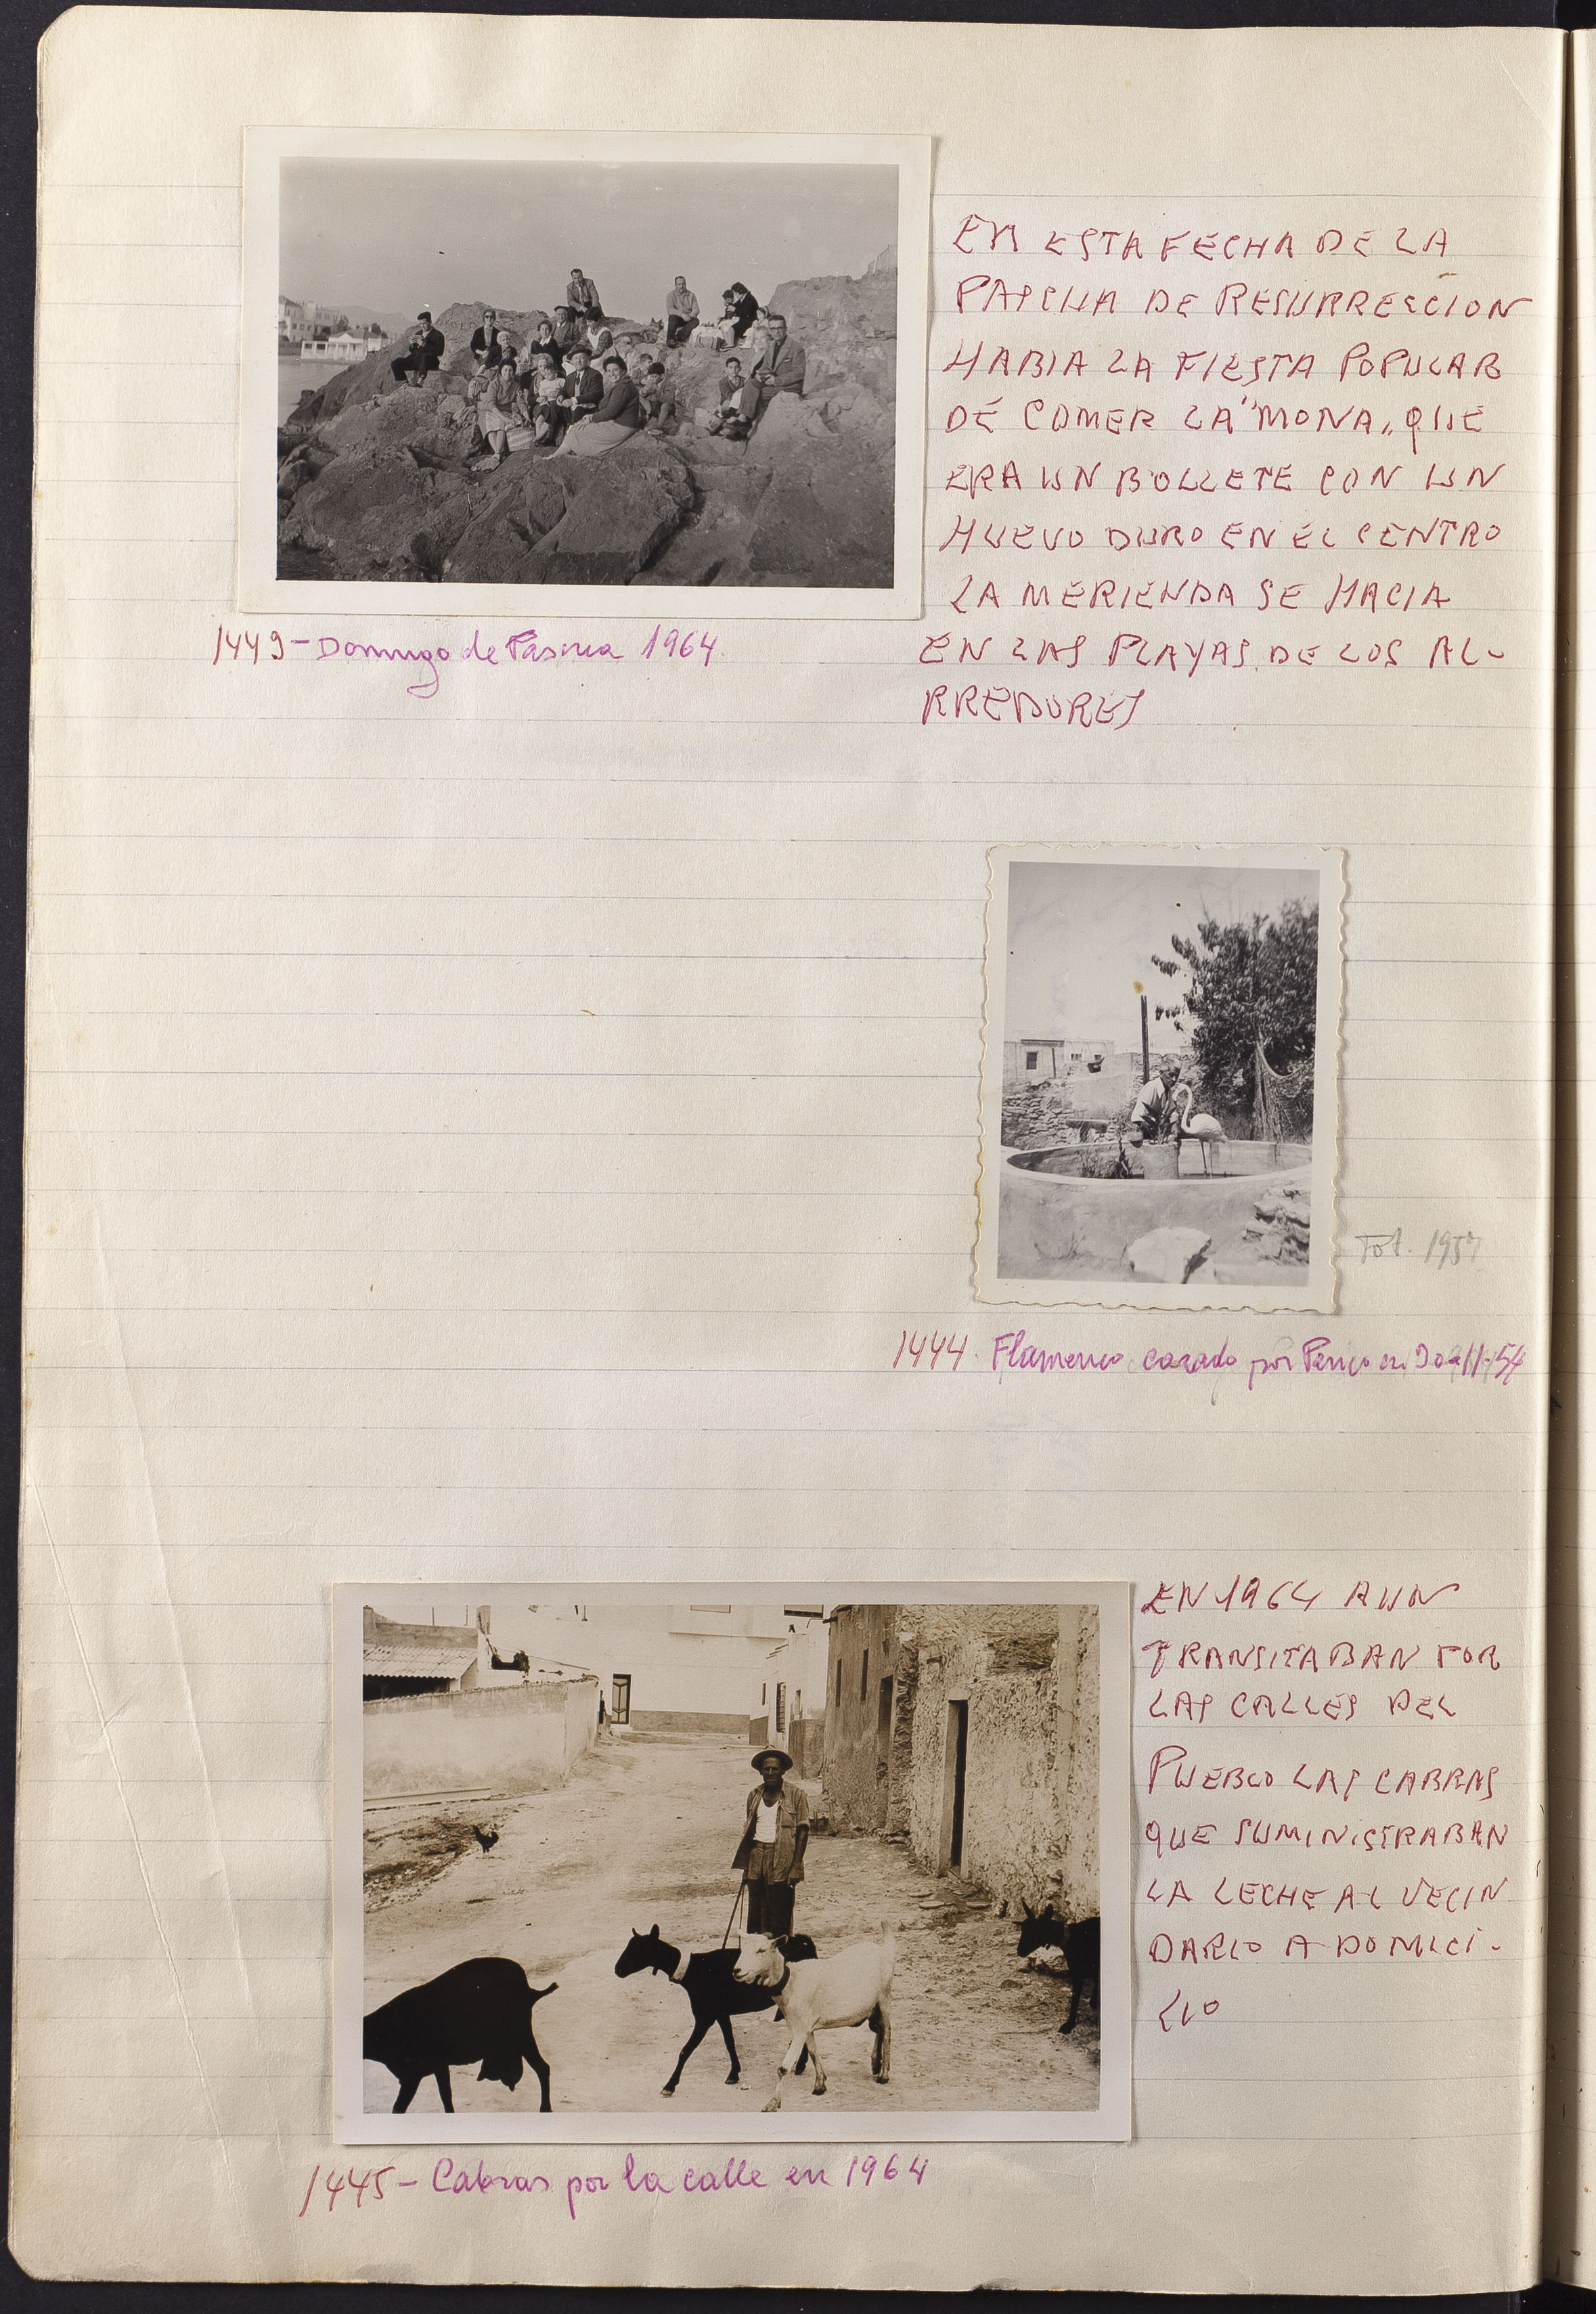 EN ESTA FECHA DE LA
PASCUA DE RESURRECCION
HABIA LA FIESTA POPULAR
DE COMER LA "MONA" QUE
ERA UN BOLLETE CON UN
HUEVO DURO EN EL CENTRO
LA MERIENDA SE HACIA
EN LAS PLAYAS DE LOS AL-
RREDORES
1449- Domingo de Pascua 1964
Fot. 1957
1444. Flamenco cazado por Perico en
1445- Cabras por la calle en 1964
EN 1964 AUN
TRANSITABAN POR
LAS CALLES DEL
PUEBLO LAS CABRAS
QUE SUMINISTRABAN
LA LECHE AL VECIN
DARIO A DOMICI-
LIO